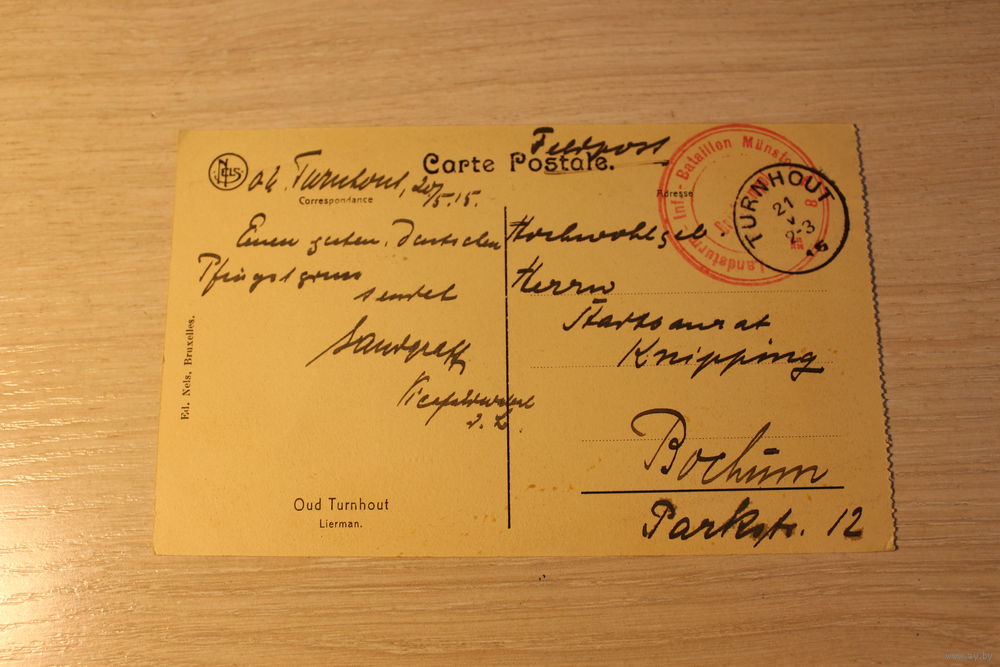 Feldpost
Carte Postale.
NELS
Turnhout, 20/5.15.
Correspondance
Adresse
Landsturm Inf.-Bataillon Münster 8
TURNHOUT
21
V
2-3
15
Einen guten Deutschen
Pfingstgruss
sendet
Landgraff
d. L.
Hochwohlgeb.
Herrn
Stadtbaurat
Knipping
Bochum
Parkstr. 12
Ed. Nels, Bruxelles.
Oud Turnhout
Lierman.
www.ay.by